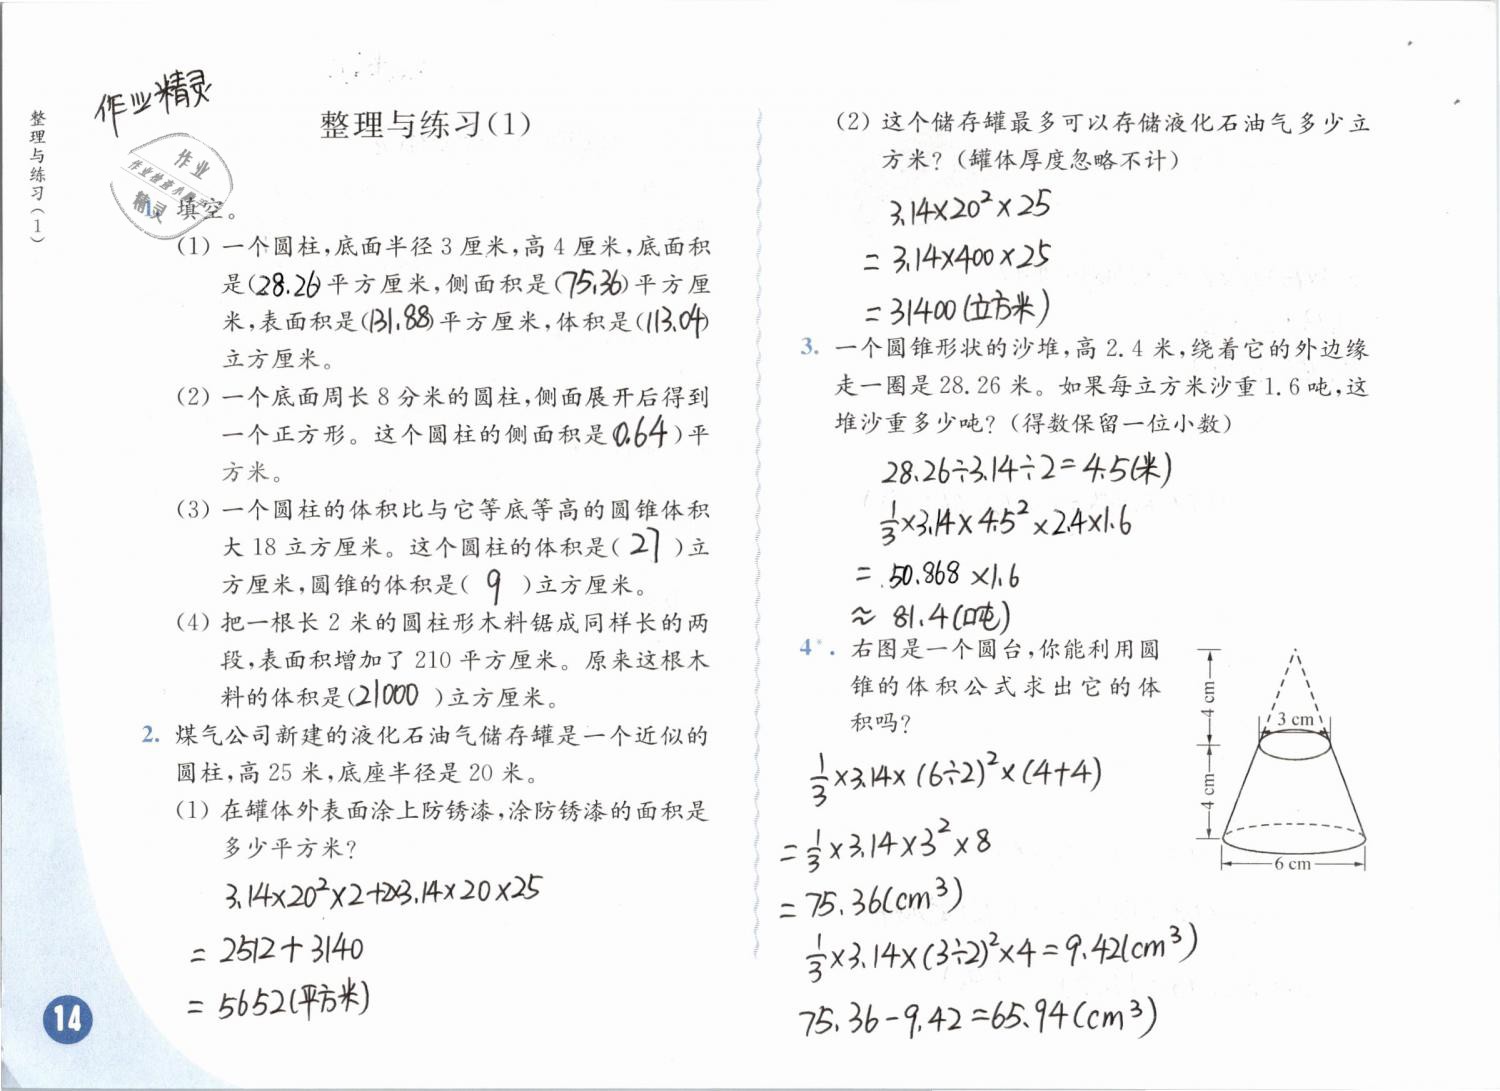 整理与练习(1)
作业精灵
作业
作业检查小
精灵
整理与练习(1)
1. 填空。
(1) 一个圆柱,底面半径 3 厘米,高 4 厘米,底面积
是(28.26)平方厘米,侧面积是(75.36)平方厘
米,表面积是(131.88)平方厘米,体积是(113.04)
立方厘米。
(2) 一个底面周长 8 分米的圆柱,侧面展开后得到
一个正方形。这个圆柱的侧面积是(0.64)平
方米。
(3) 一个圆柱的体积比与它等底等高的圆锥体积
大 18 立方厘米。这个圆柱的体积是( 27 )立
方厘米,圆锥的体积是( 9 )立方厘米。
(4) 把一根长 2 米的圆柱形木料锯成同样长的两
段,表面积增加了 210 平方厘米。原来这根木
料的体积是(21000 )立方厘米。
2. 煤气公司新建的液化石油气储存罐是一个近似的
圆柱,高 25 米,底座半径是 20 米。
(1) 在罐体外表面涂上防锈漆,涂防锈漆的面积是
多少平方米?
3.14×20²×2+2×3.14×20×25
= 2512+3140
= 5652(平方米)
14
(2) 这个储存罐最多可以存储液化石油气多少立
方米? (罐体厚度忽略不计)
3.14×20²×25
= 3.14×400×25
= 31400(立方米)
3. 一个圆锥形状的沙堆,高 2.4 米,绕着它的外边缘
走一圈是 28.26 米。如果每立方米沙重 1.6 吨,这
堆沙重多少吨? (得数保留一位小数)
28.26÷3.14÷2=4.5(米)
1/3×3.14×4.5²×2.4×1.6
= 50.868×1.6
≈ 81.4(吨)
4*. 右图是一个圆台,你能利用圆
锥的体积公式求出它的体
积吗?
4 cm
3 cm
4 cm
6 cm
1/3×3.14×(6÷2)²×(4+4)
= 1/3×3.14×3²×8
= 75.36(cm³)
1/3×3.14×(3÷2)²×4=9.42(cm³)
75.36-9.42=65.94(cm³)